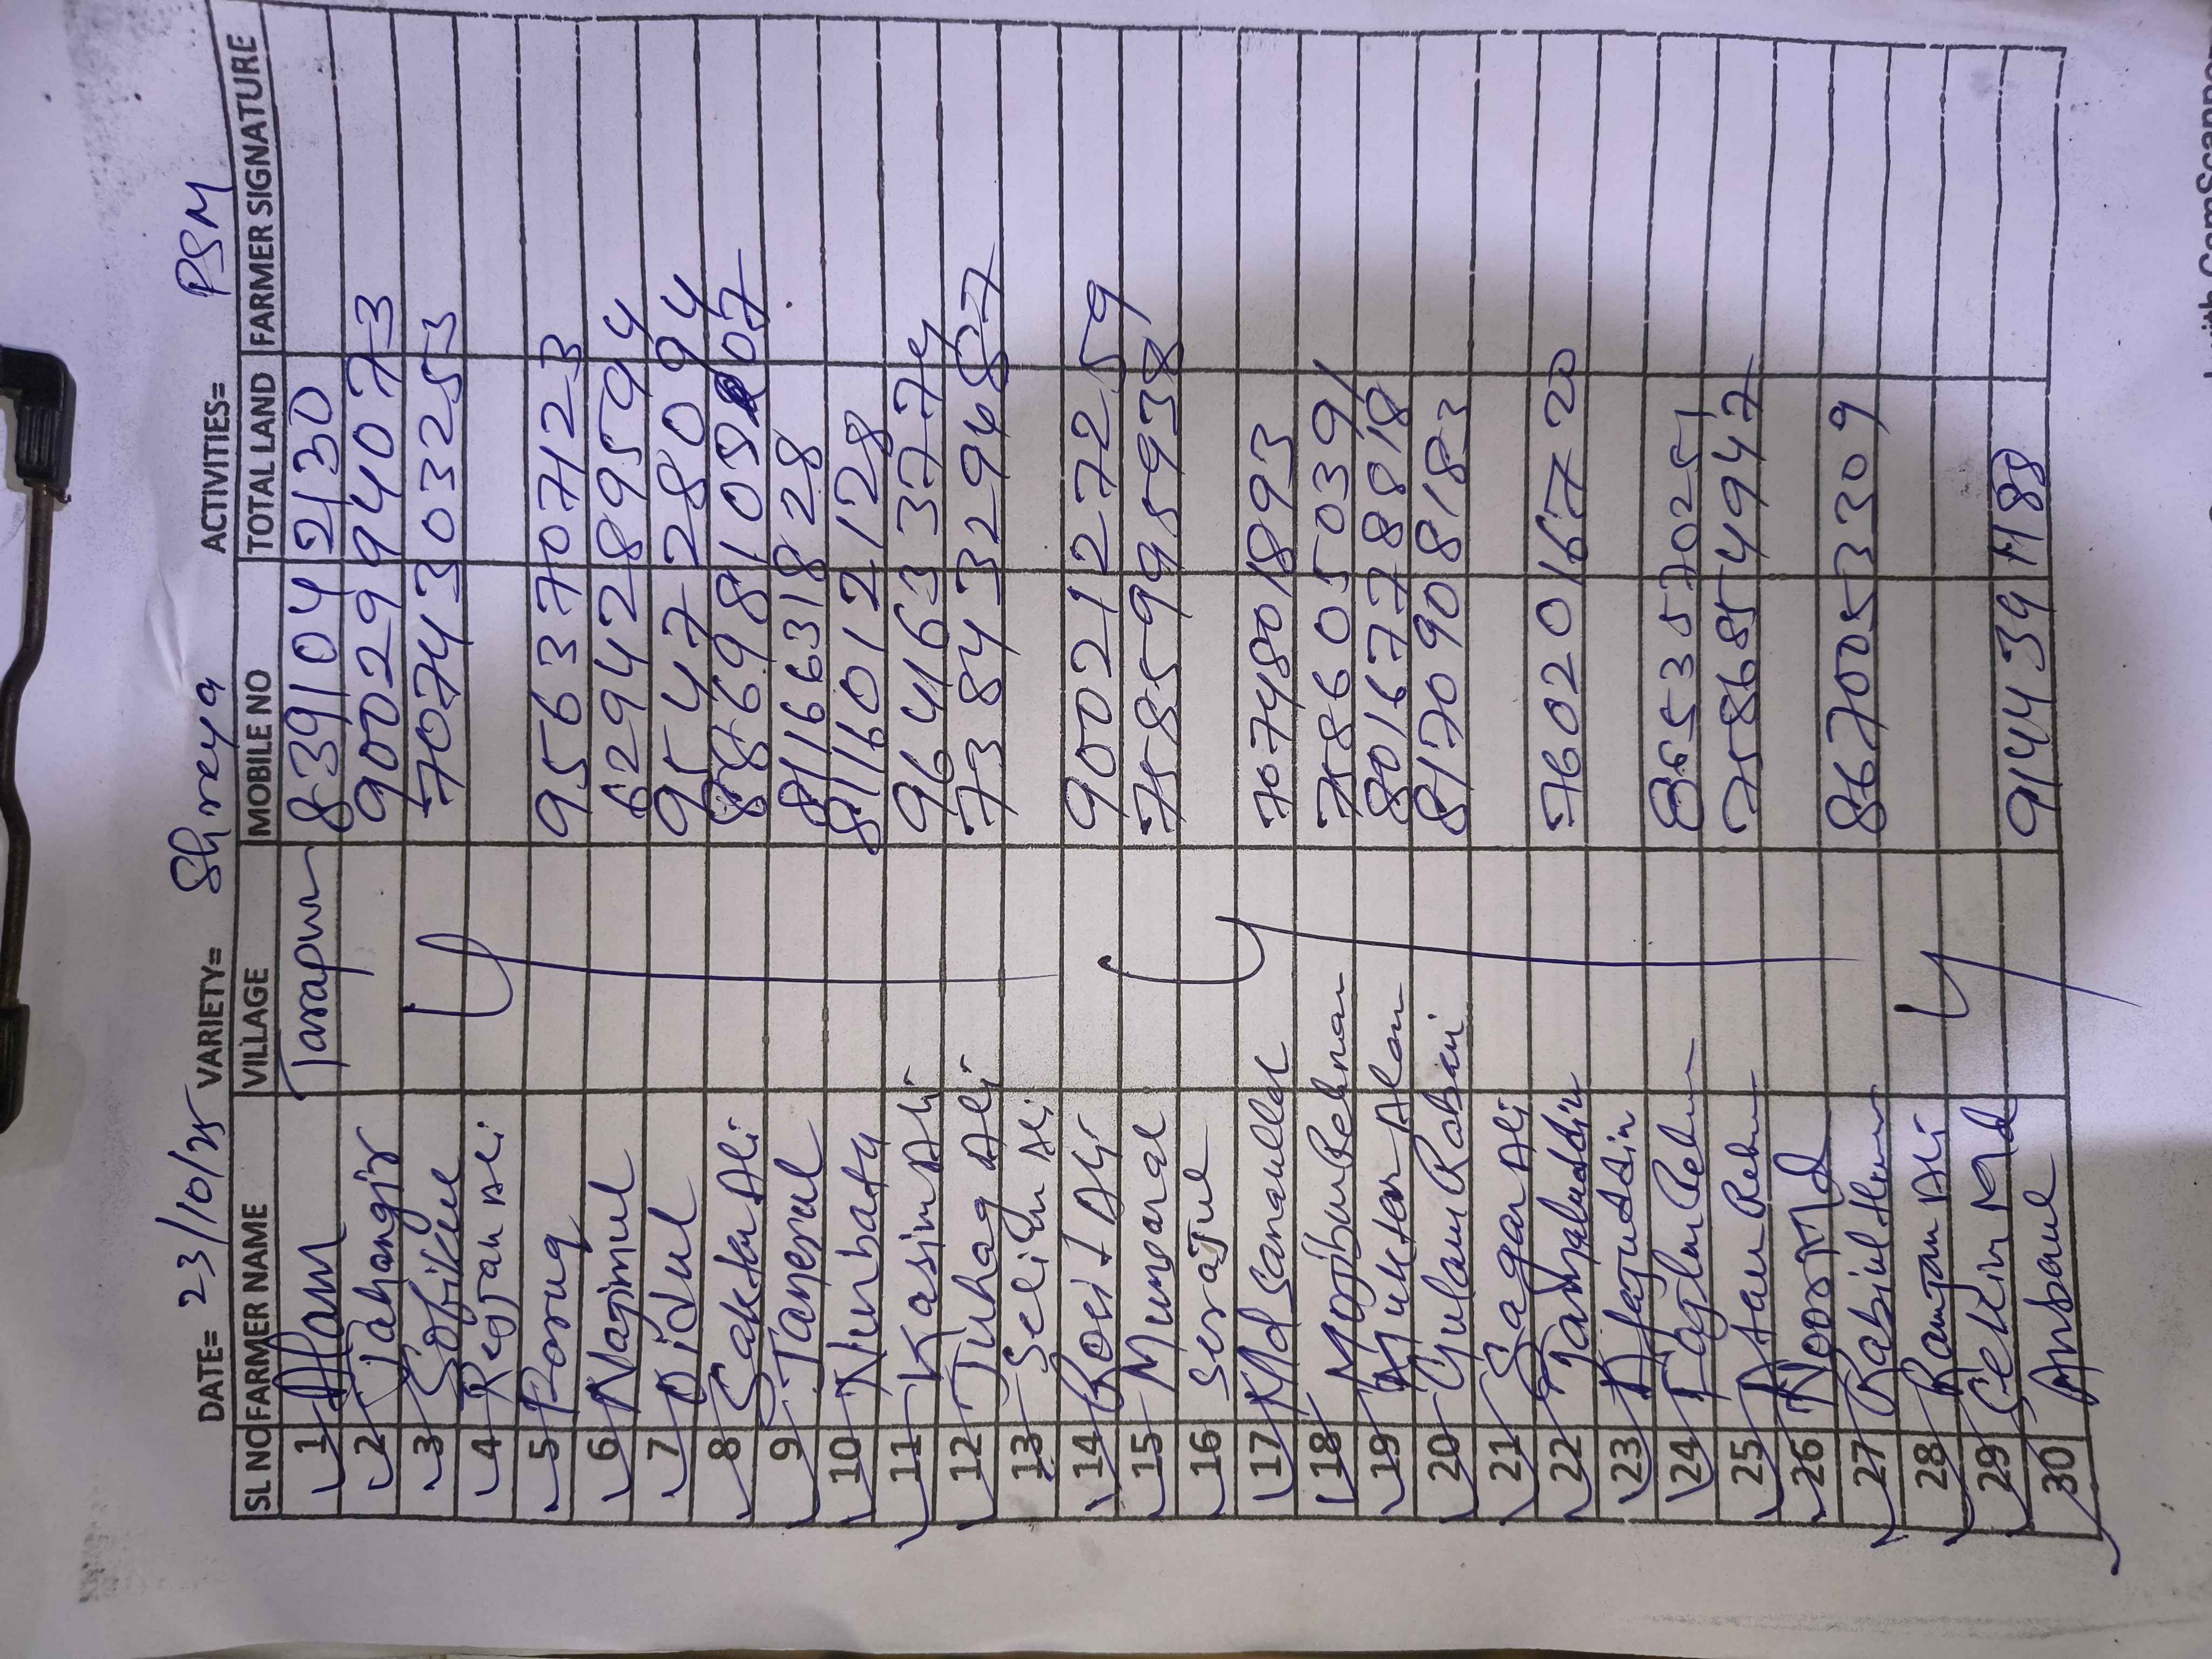 DATE= 23/10/25 VARIETY= Shreya ACTIVITIES= PSM
SL NO FARMER NAME VILLAGE MOBILE NO TOTAL LAND FARMER SIGNATURE
1 Alam Tarapur 8391042130
2 Jahangir 9002994073
3 Sofikul 7074303253
4 Rejjan Ali
5 Poruq 9563707123
6 Najimul 6294289594
7 Didul 9547728094
8 Saktar Ali
9 Tanejul 8116631828
10 Nurbata 8116012128
11 Kasim Ali 9641633774
12 Juhaq Ali 7384329487
13 Selim Ali
14 Rosit Ali 9002127259
15 Mungaral 7585995938
16 Serajul
17 Md Sanaullah 7074801893
18 Mojibur Rehman 7586050391
19 Muktar Alam 8016778818
20 Gulam Rabani 8170908183
21 Sagar Ali
22 Tamijuddin 7602016720
23 Afajuddin
24 Fajlur Rehm 8653570251
25 Ataur Rehm 7586854947
26 Noor Md
27 Rabiul Hum 8670053309
28 Ramjan Ali
29 Selim Md
30 Anbaul 9144391188